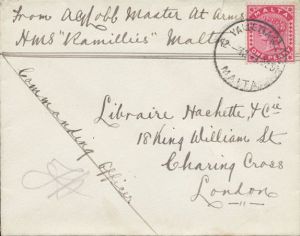 From A G Cobb Master At Arms
HMS "Ramillies" Malta
MALTA
VALLETTA
MALTA
Commanding Officer
Libraire Hachette & Cie
18 King William St
Charing Cross
London